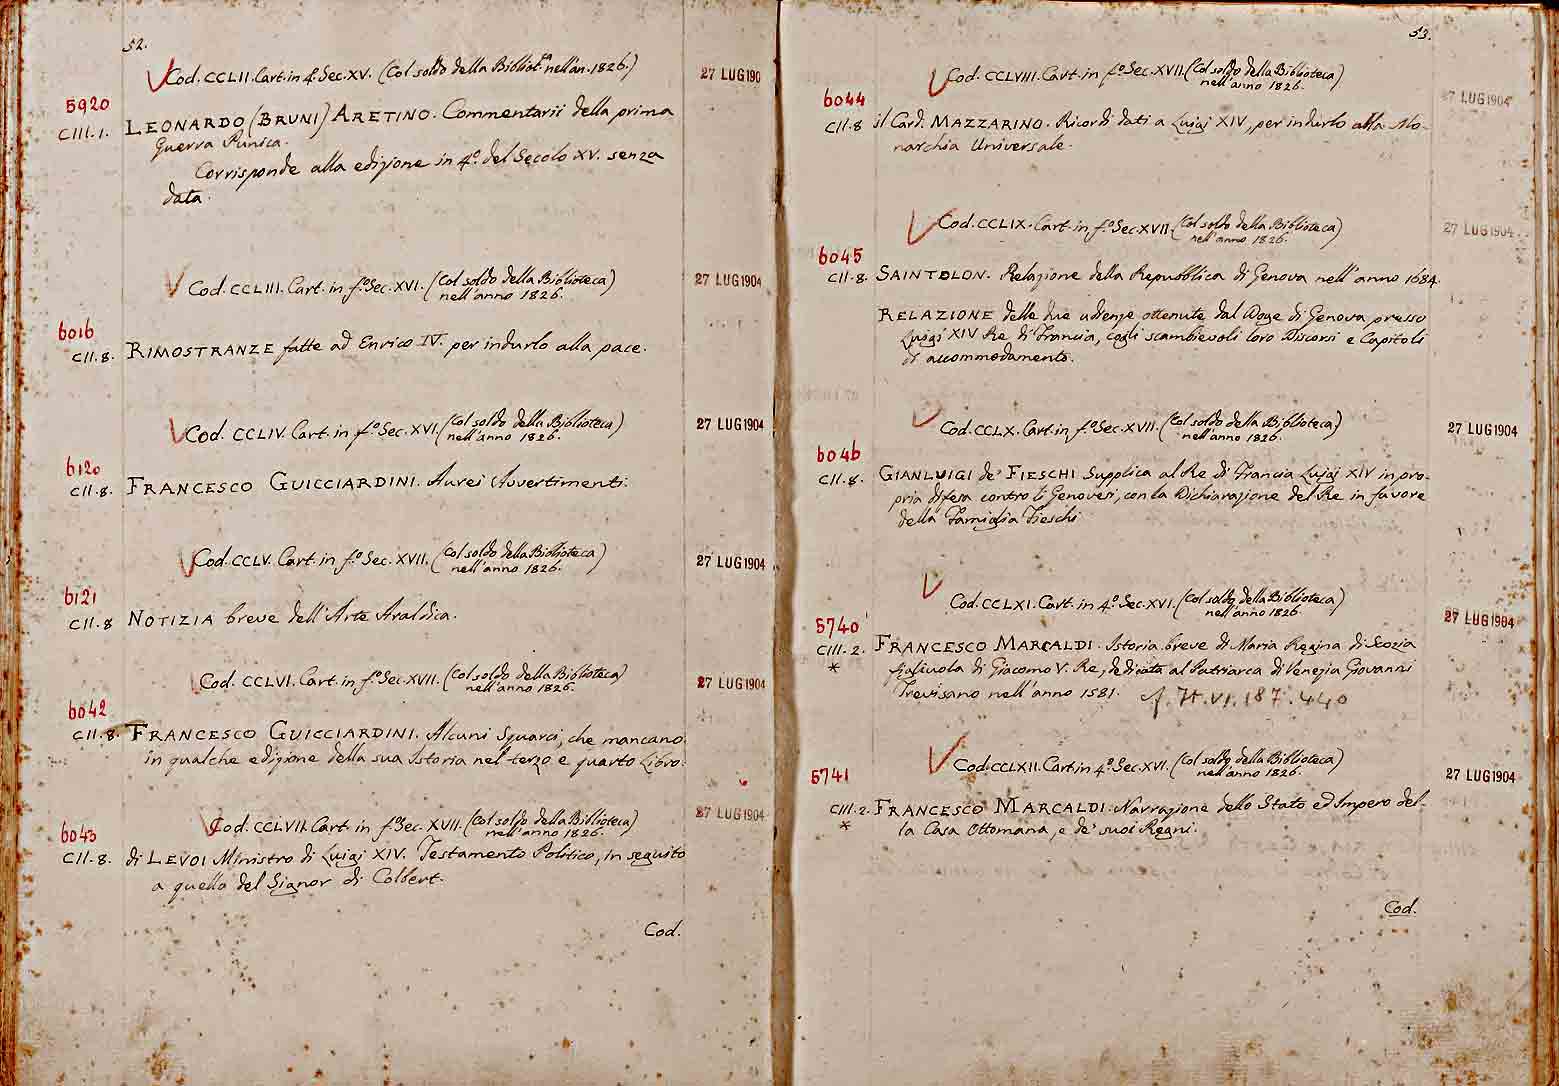 52.
Cod. CCLII. Cart. in 4º. Sec. XV. (Col soldo della Bibliot.ca nell'an. 1826.)
27 LUG 190
5920
CIII. 1.
LEONARDO (BRUNI) ARETINO. Commentarii della prima
Guerra Punica.
Corrisponde alla edizione in 4º. del Secolo XV. senza
data.
Cod. CCLIII. Cart. in fº. Sec. XVI. (Col soldo della Biblioteca)
nell'anno 1826.
27 LUG 1904
6016
CII. 8.
RIMOSTRANZE fatte ad Enrico IV. per indurlo alla pace.
Cod. CCLIV. Cart. in fº. Sec. XVI. (Col soldo della Biblioteca)
nell'anno 1826.
27 LUG 1904
6120
CII. 8.
FRANCESCO GUICCIARDINI. Aurei Avvertimenti.
Cod. CCLV. Cart. in fº. Sec. XVII. (Col soldo della Biblioteca)
nell'anno 1826.
27 LUG 1904
6121
CII. 8
NOTIZIA breve dell'Arte Araldica.
Cod. CCLVI. Cart. in fº. Sec. XVII. (Col soldo della Biblioteca)
nell'anno 1826.
27 LUG 1904
6042
CII. 8.
FRANCESCO GUICCIARDINI. Alcuni Squarci, che mancano
in qualche edizione della sua Istoria nel terzo e quarto Libro.
Cod. CCLVII. Cart. in fº. Sec. XVII. (Col soldo della Biblioteca)
nell'anno 1826.
27 LUG 1904
6043
CII. 8.
di LEVOI Ministro di Luigi XIV. Testamento Politico, in seguito
a quello del Signor di Colbert.
Cod.
53.
Cod. CCLVIII. Cart. in fº. Sec. XVII. (Col soldo della Biblioteca)
nell'anno 1826.
27 LUG 1904
6044
CII. 8
il Card. MAZZARINO. Ricordi dati a Luigi XIV, per indurlo alla Mo-
narchia Universale.
Cod. CCLIX. Cart. in fº. Sec. XVII. (Col soldo della Biblioteca)
nell'anno 1826.
27 LUG 1904
6045
CII. 8.
SAINTOLON. Relazione della Repubblica di Genova nell'anno 1684.
RELAZIONE delle due udienze ottenute dal Doge di Genova presso
Luigi XIV Re di Francia, cogli scambievoli loro Discorsi e Capitoli
di accommodamento.
Cod. CCLX. Cart. in fº. Sec. XVII. (Col soldo della Biblioteca)
nell'anno 1826.
27 LUG 1904
6046
CII. 8.
GIANLUIGI de' FIESCHI Supplica al Re di Francia Luigi XIV in pro-
pria difesa contro li Genovesi, con la Dichiarazione del Re in favore
della Famiglia Fieschi
Cod. CCLXI. Cart. in 4º. Sec. XVI. (Col soldo della Biblioteca)
nell'anno 1826.
27 LUG 1904
5740
CIII. 2.
*
FRANCESCO MARCALDI. Istoria breve di Maria Regina di Scozia
figliuola di Giacomo V. Re, dedicata al Patriarca di Venezia Giovanni
Trevisano nell'anno 1581. cf. It. VI. 187. 440
Cod. CCLXII. Cart. in 4º. Sec. XVI. (Col soldo della Biblioteca)
nell'anno 1826.
27 LUG 1904
5741
CIII. 2.
*
FRANCESCO MARCALDI. Narrazione dello Stato ed Impero del-
la Casa Ottomana, e de' suoi Regni.
Cod.